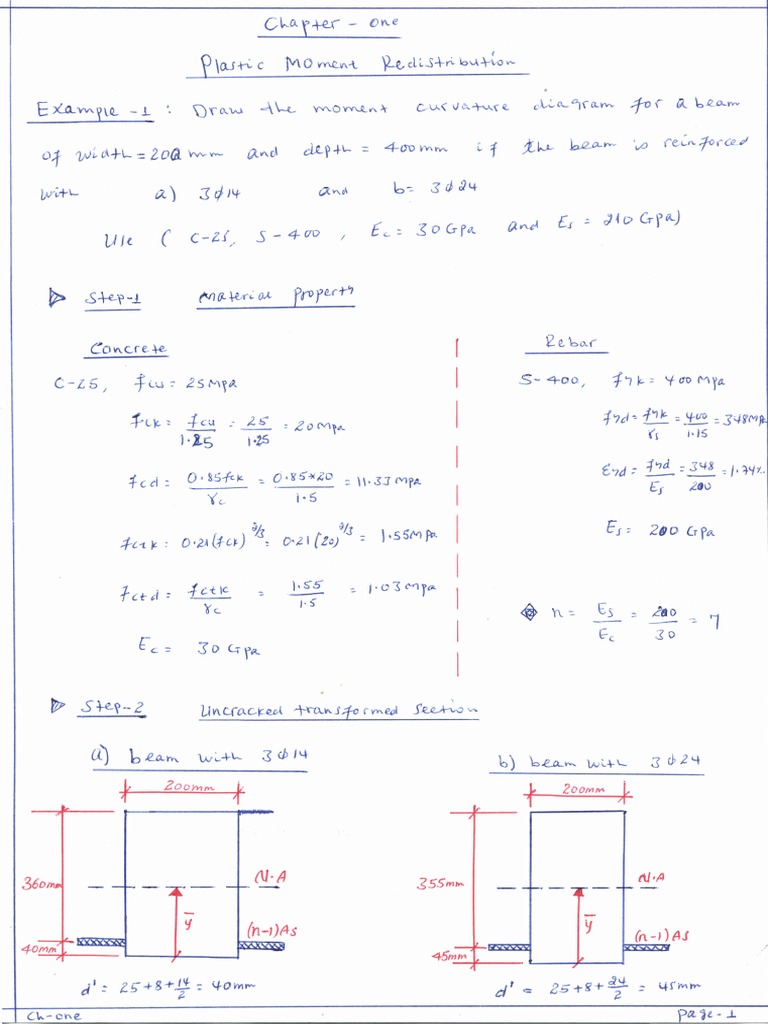 Chapter - one
Plastic Moment Redistribution
Example -1 : Draw the moment curvature diagram for a beam
of width = 200 mm and depth = 400mm if the beam is reinforced
with a) 3ϕ14 and b= 3ϕ24
Use ( C-25, S-400 , Ec = 30 Gpa and Es = 210 Gpa)
Step-1 Material property
Concrete
C-25, fcu = 25 Mpa
fck = fcu/1.25 = 25/1.25 = 20 Mpa
fcd = 0.85fck/γc = 0.85*20/1.5 = 11.33 Mpa
fctk = 0.21(fck)^2/3 = 0.21(20)^2/3 = 1.55 Mpa
fctd = fctk/γc = 1.55/1.5 = 1.03 Mpa
Ec = 30 Gpa
Rebar
S-400, fyk = 400 Mpa
fyd = fyk/γs = 400/1.15 = 348 Mpa
Eyd = fyd/Es = 348/200 = 1.74‰
Es = 200 Gpa
n = Es/Ec = 200/30 = 7
Step-2 Uncracked transformed section
a) beam with 3ϕ14
200mm
360mm
N.A
ȳ
(n-1)As
40mm
d' = 25+8+14/2 = 40mm
b) beam with 3ϕ24
200mm
355mm
N.A
ȳ
(n-1)As
45mm
d' = 25+8+24/2 = 45mm
Ch-one
page-1